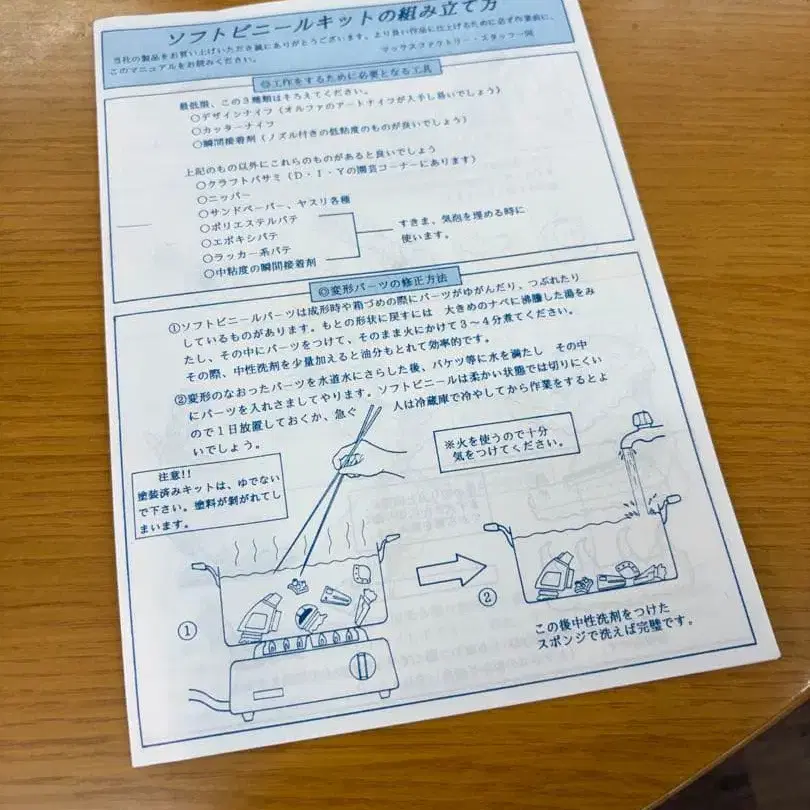 ソフトビニールキットの組み立て方
当社の製品をお買い上げいただき誠にありがとうございます。より良い作品に仕上げるために必ず作業前に、
このマニュアルをお読みください。
マックスファクトリー・スタッフ一同
◎工作をするために必要となる工具
最低限、この3種類はそろえてください。
○デザインナイフ（オルファのアートナイフが入手し易いでしょう）
○カッターナイフ
○瞬間接着剤（ノズル付きの低粘度のものが良いでしょう）
上記のもの以外にこれらのものがあると良いでしょう
○クラフトバサミ（D・I・Yの園芸コーナーにあります）
○ニッパー
○サンドペーパー、ヤスリ各種
○ポリエステルパテ
○エポキシパテ
○ラッカー系パテ
○中粘度の瞬間接着剤
すきま、気泡を埋める時に
使います。
◎変形パーツの修正方法
①ソフトビニールパーツは成形時や箱づめの際にパーツがゆがんだり、つぶれたり
しているものがあります。もとの形状に戻すには 大きめのナベに沸騰した湯をみ
たし、その中にパーツをつけて、そのまま火にかけて3～4分煮てください。
その際、中性洗剤を少量加えると油分もとれて効率的です。
②変形のなおったパーツを水道水にさらした後、バケツ等に水を満たし その中
にパーツを入れさましてやります。ソフトビニールは柔かい状態では切りにくい
ので1日放置しておくか、急ぐ 人は冷蔵庫で冷やしてから作業をするとよ
いでしょう。
注意!!
塗装済みキットは、ゆでない
で下さい。塗料が剝がれてし
まいます。
※火を使うので十分
気をつけてください。
①
②
この後中性洗剤をつけた
スポンジで洗えば完璧です。